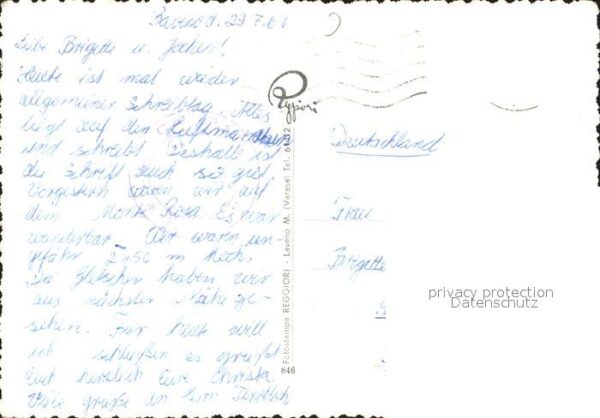 Baveno d. 29.7.61
Liebe Brigitte u. Jochen!
Heute ist mal wieder
allgemeiner Schreibtag. Alles
liegt auf den Luftmatratzen
und schreibt. Deshalb ist
die Schrift auch so gut.
Vorgestern waren wir auf
dem Monte Rosa. Es war
wunderbar. Wir waren un-
gefähr m hoch.
Die Gletscher haben wir
aus nächster Nähe ge-
sehen. Für heute will
ich schließen es grüßt
Euch herzlich Eure Christa
Viele grüße an
Reggiori
Fotostampa REGGIORI - Laveno M. (Varese) Tel. 61132
846
Deutschland
Frau
Brigitte
privacy protection
Datenschutz